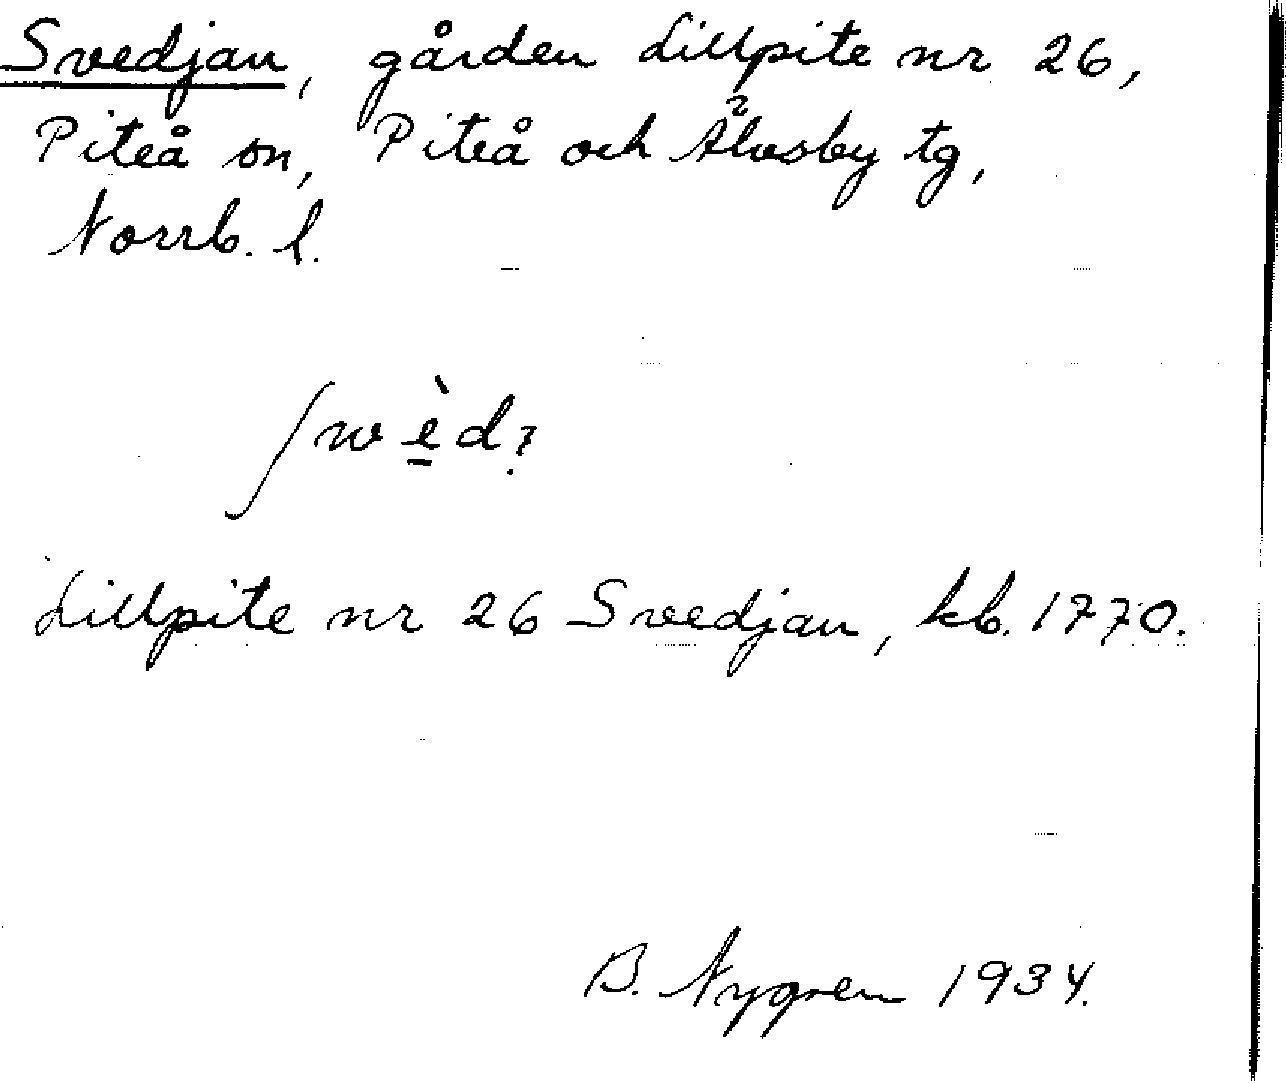 Svedjan, gården Lillpite nr 26,
Piteå sn, Piteå och Älvsby tg,
Norrb. l.
ʃwèd?
Lillpite nr 26 Svedjan, kb. 1770.
B. Nygren 1934.